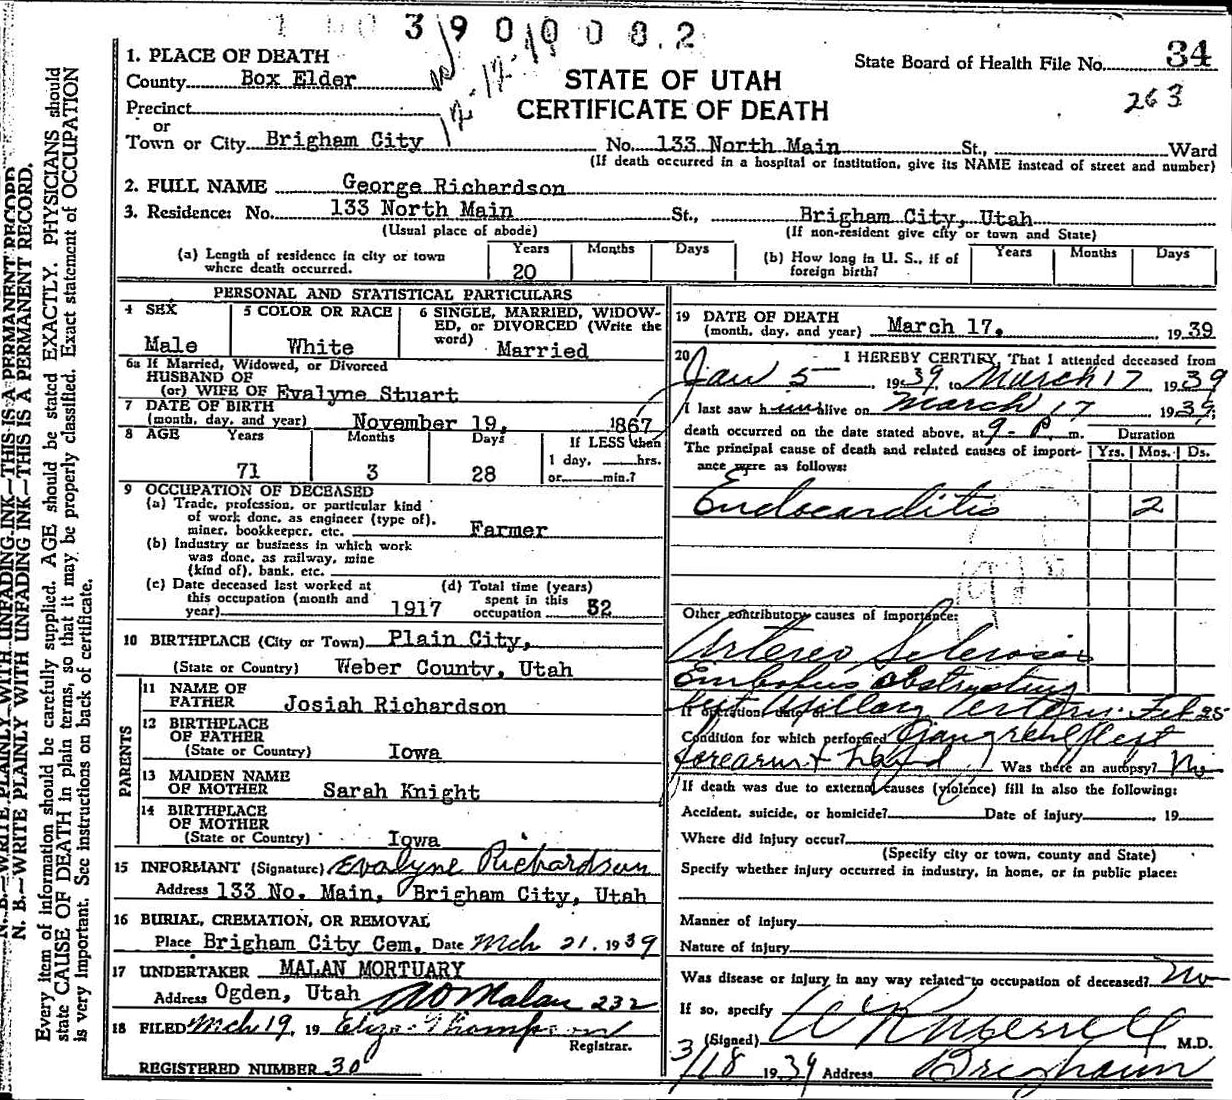 3 9 0 0 0 8 2
1. PLACE OF DEATH
County Box Elder
Precinct
or
Town or City Brigham City No. 133 North Main St., Ward
(If death occurred in a hospital or institution, give its NAME instead of street and number)
STATE OF UTAH
CERTIFICATE OF DEATH
State Board of Health File No. 34
263
2. FULL NAME George Richardson
3. Residence: No. 133 North Main St., Brigham City, Utah
(Usual place of abode) (If non-resident give city or town and State)
(a) Length of residence in city or town where death occurred. Years 20 Months Days
(b) How long in U. S., if of foreign birth? Years Months Days
PERSONAL AND STATISTICAL PARTICULARS
4 SEX Male
5 COLOR OR RACE White
6 SINGLE, MARRIED, WIDOWED, or DIVORCED (Write the word) Married
6a If Married, Widowed, or Divorced
HUSBAND OF
(or) WIFE OF Evalyne Stuart
7 DATE OF BIRTH
(month, day, and year) November 19, 1867
8 AGE Years 71 Months 3 Days 28 If LESS than 1 day, hrs. or min.?
9 OCCUPATION OF DECEASED
(a) Trade, profession, or particular kind
of work done, as engineer (type of),
miner, bookkeeper, etc. Farmer
(b) Industry or business in which work
was done, as railway, mine
(kind of), bank, etc.
(c) Date deceased last worked at this occupation (month and year) 1917
(d) Total time (years) spent in this occupation 32
10 BIRTHPLACE (City or Town) Plain City,
(State or Country) Weber County, Utah
PARENTS
11 NAME OF
FATHER Josiah Richardson
12 BIRTHPLACE
OF FATHER
(State or Country) Iowa
13 MAIDEN NAME
OF MOTHER Sarah Knight
14 BIRTHPLACE
OF MOTHER
(State or Country) Iowa
15 INFORMANT (Signature) Evalyne Richardson
Address 133 No. Main, Brigham City, Utah
16 BURIAL, CREMATION, OR REMOVAL
Place Brigham City Cem. Date Mch 21. 1939
17 UNDERTAKER MALAN MORTUARY
Address Ogden, Utah Malan 232
18 FILED Mch 19, 19 Eliza Thompson
Registrar.
REGISTERED NUMBER 30
19 DATE OF DEATH
(month, day, and year) March 17, 1939
20 I HEREBY CERTIFY, That I attended deceased from
Jan 5 1939 to March 17 1939
I last saw him alive on March 17 1939,
death occurred on the date stated above, at 9- P. m.
The principal cause of death and related causes of importance were as follows: Duration Yrs. Mos. Ds.
Endocarditis 2
Other contributory causes of importance:
Artereo Sclerosis
Embolus obstructing
left Axillary Artery. Feb 25
If operation, date of
Condition for which performed Gangrene left
forearm + hand Was there an autopsy? No
If death was due to external causes (violence) fill in also the following:
Accident, suicide, or homicide? Date of injury 19
Where did injury occur?
(Specify city or town, county and State)
Specify whether injury occurred in industry, in home, or in public place:
Manner of injury
Nature of injury
Was disease or injury in any way related to occupation of deceased? No
If so, specify
(Signed) M.D.
3/18 1939 Address Brigham
N. B.—WRITE PLAINLY WITH UNFADING INK—THIS IS A PERMANENT RECORD.
N. B.—WRITE PLAINLY WITH UNFADING INK—THIS IS A PERMANENT RECORD.
Every item of information should be carefully supplied. AGE should be stated EXACTLY. PHYSICIANS should
state CAUSE OF DEATH in plain terms, so that it may be properly classified. Exact statement of OCCUPATION
is very important. See instructions on back of certificate.